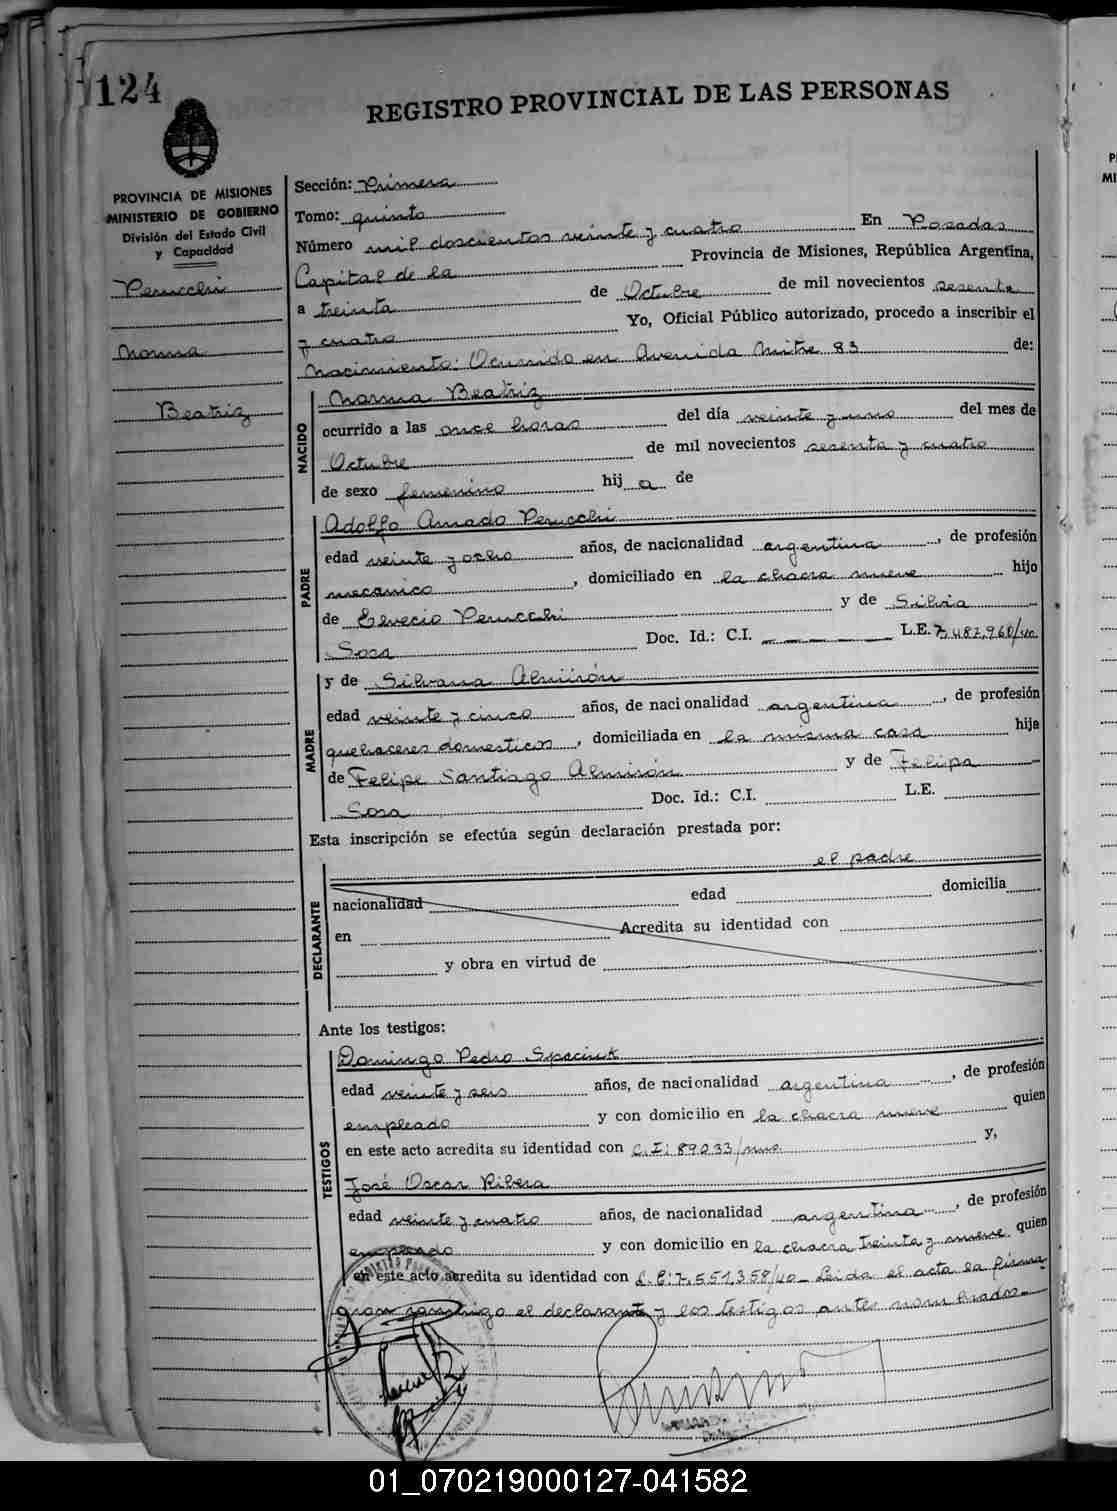 124
REGISTRO PROVINCIAL DE LAS PERSONAS
PROVINCIA DE MISIONES
MINISTERIO DE GOBIERNO
División del Estado Civil
y Capacidad
Perucchi
Norma
Beatriz
Sección: Primera
Tomo: quinto
Número mil doscientos veinte y cuatro En Posadas
Capital de la Provincia de Misiones, República Argentina,
a treinta de Octubre de mil novecientos sesenta
y cuatro Yo, Oficial Público autorizado, procedo a inscribir el
Nacimiento: Ocurrido en Avenida Mitre 83 de:
NACIDO
Norma Beatriz
ocurrido a las once horas del día veinte y uno del mes de
Octubre de mil novecientos sesenta y cuatro
de sexo femenino hij a de
PADRE
Adolfo Amado Perucchi
edad veinte y ocho años, de nacionalidad argentina, de profesión
mecanico, domiciliado en la chacra nueve hijo
de Elvecio Perucchi y de Silvia
Sosa Doc. Id.: C.I. L.E. 7.487.960/
MADRE
y de Silvana Almirón
edad veinte y cinco años, de nacionalidad argentina, de profesión
quehaceres domesticos, domiciliada en la misma casa hija
de Felipe Santiago Almirón y de Felipa
Sosa Doc. Id.: C.I. L.E.
Esta inscripción se efectúa según declaración prestada por:
el padre
DECLARANTE
nacionalidad edad domicilia
en Acredita su identidad con
y obra en virtud de
Ante los testigos:
TESTIGOS
Domingo Pedro Spaciuk
edad veinte y seis años, de nacionalidad argentina, de profesión
empleado y con domicilio en la chacra nueve quien
en este acto acredita su identidad con C.I: 89033/mnes. y,
José Oscar Ribera
edad veinte y cuatro años, de nacionalidad argentina, de profesión
empleado y con domicilio en la chacra treinta y nueve quien
en este acto acredita su identidad con L.E: 7.551.358/40 - Leida el acta la firma
ron conmigo el declarante y los testigos antes nombrados.
01_070219000127-041582